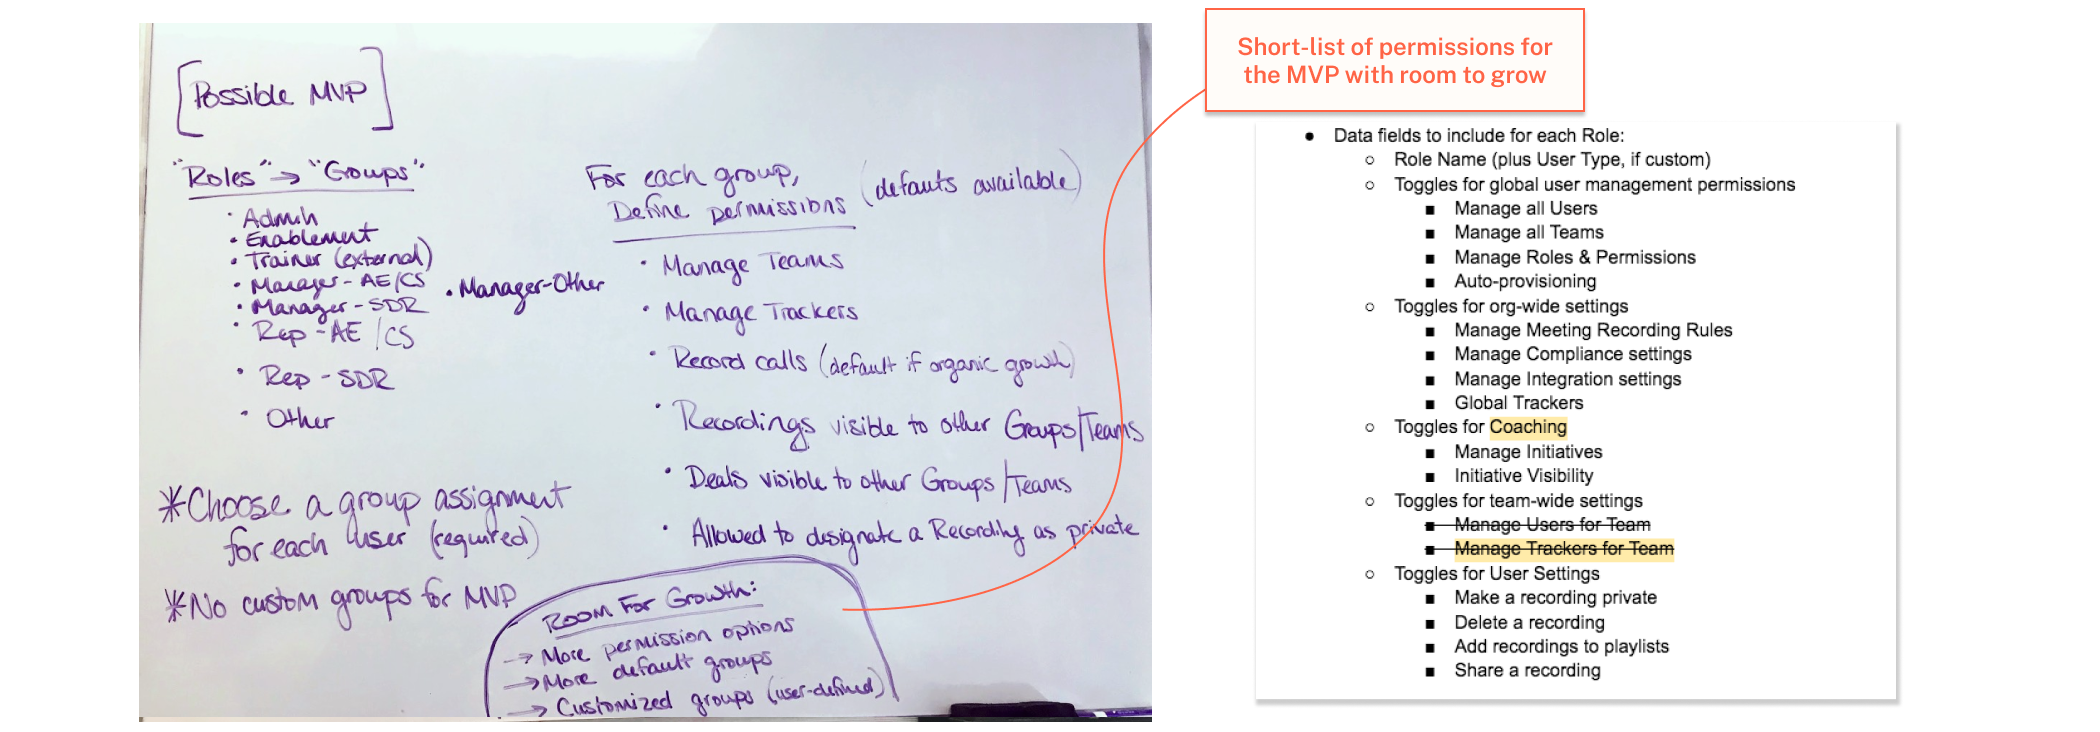 [Possible MVP]
"Roles" → "Groups"
• Admin
• Enablement
• Trainer (external)
• Manager - AE/CS
• Manager-Other
• Manager - SDR
• Rep - AE / CS
• Rep - SDR
• Other
*Choose a group assignment
for each user (required)
*No custom groups for MVP
For each group,
Define permissions
(defauts available)
• Manage Teams
• Manage Trackers
• Record calls (default if organic growth)
• Recordings visible to other Groups/Teams
• Deals visible to other Groups/Teams
• Allowed to designate a Recording as private
Room For Growth:
→ More permission options
→ More default groups
→ Customized groups (user-defined)
Short-list of permissions for
the MVP with room to grow
● Data fields to include for each Role:
○ Role Name (plus User Type, if custom)
○ Toggles for global user management permissions
■ Manage all Users
■ Manage all Teams
■ Manage Roles & Permissions
■ Auto-provisioning
○ Toggles for org-wide settings
■ Manage Meeting Recording Rules
■ Manage Compliance settings
■ Manage Integration settings
■ Global Trackers
○ Toggles for Coaching
■ Manage Initiatives
■ Initiative Visibility
○ Toggles for team-wide settings
■ Manage Users for Team
■ Manage Trackers for Team
○ Toggles for User Settings
■ Make a recording private
■ Delete a recording
■ Add recordings to playlists
■ Share a recording